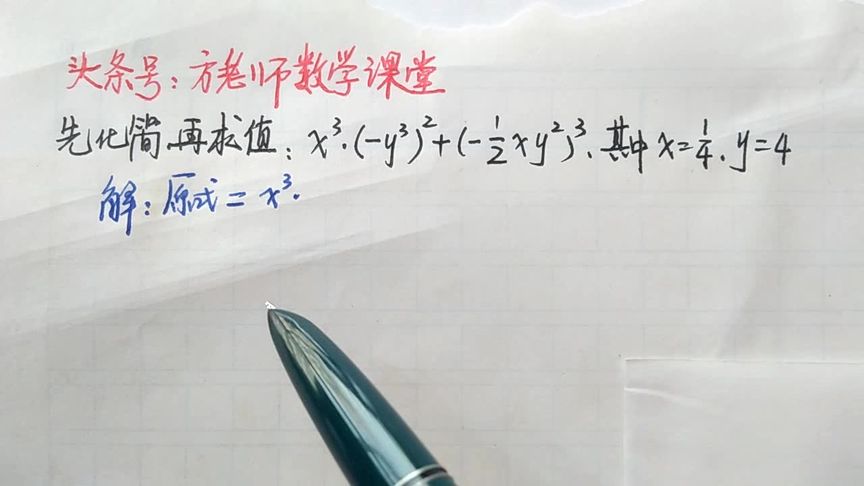 头条号：方老师数学课堂
先化简,再求值：x³·(-y³)²+(-½xy²)³、其中x=¼、y=4
解：原式=x³·